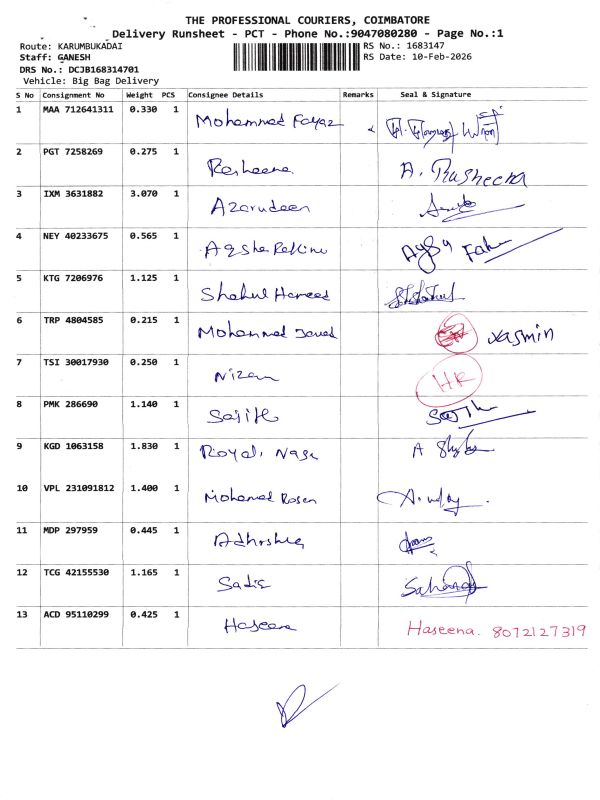 THE PROFESSIONAL COURIERS, COIMBATORE
Delivery Runsheet - PCT - Phone No.:9047080280 - Page No.:1
Route: KARUMBUKADAI RS No.: 1683147
Staff: GANESH RS Date: 10-Feb-2026
DRS No.: DCJB168314701
Vehicle: Big Bag Delivery
S No Consignment No Weight PCS Consignee Details Remarks Seal & Signature
1 MAA 712641311 0.330 1 Mohammed Fayaz
2 PGT 7258269 0.275 1 Rasheena A. Rasheena
3 IXM 3631882 3.070 1 Azarudeen
4 NEY 40233675 0.565 1
5 KTG 7206976 1.125 1 Shahul Hameed
6 TRP 4804585 0.215 1 Mohammed Javed Yasmin
7 TSI 30017930 0.250 1 Nizam HR
8 PMK 286690 1.140 1 Sajith
9 KGD 1063158 1.830 1 Royal
10 VPL 231091812 1.400 1 Mohamed
11 MDP 297959 0.445 1
12 TCG 42155530 1.165 1 Sadiq
13 ACD 95110299 0.425 1 Haseena Haseena. 8072127319